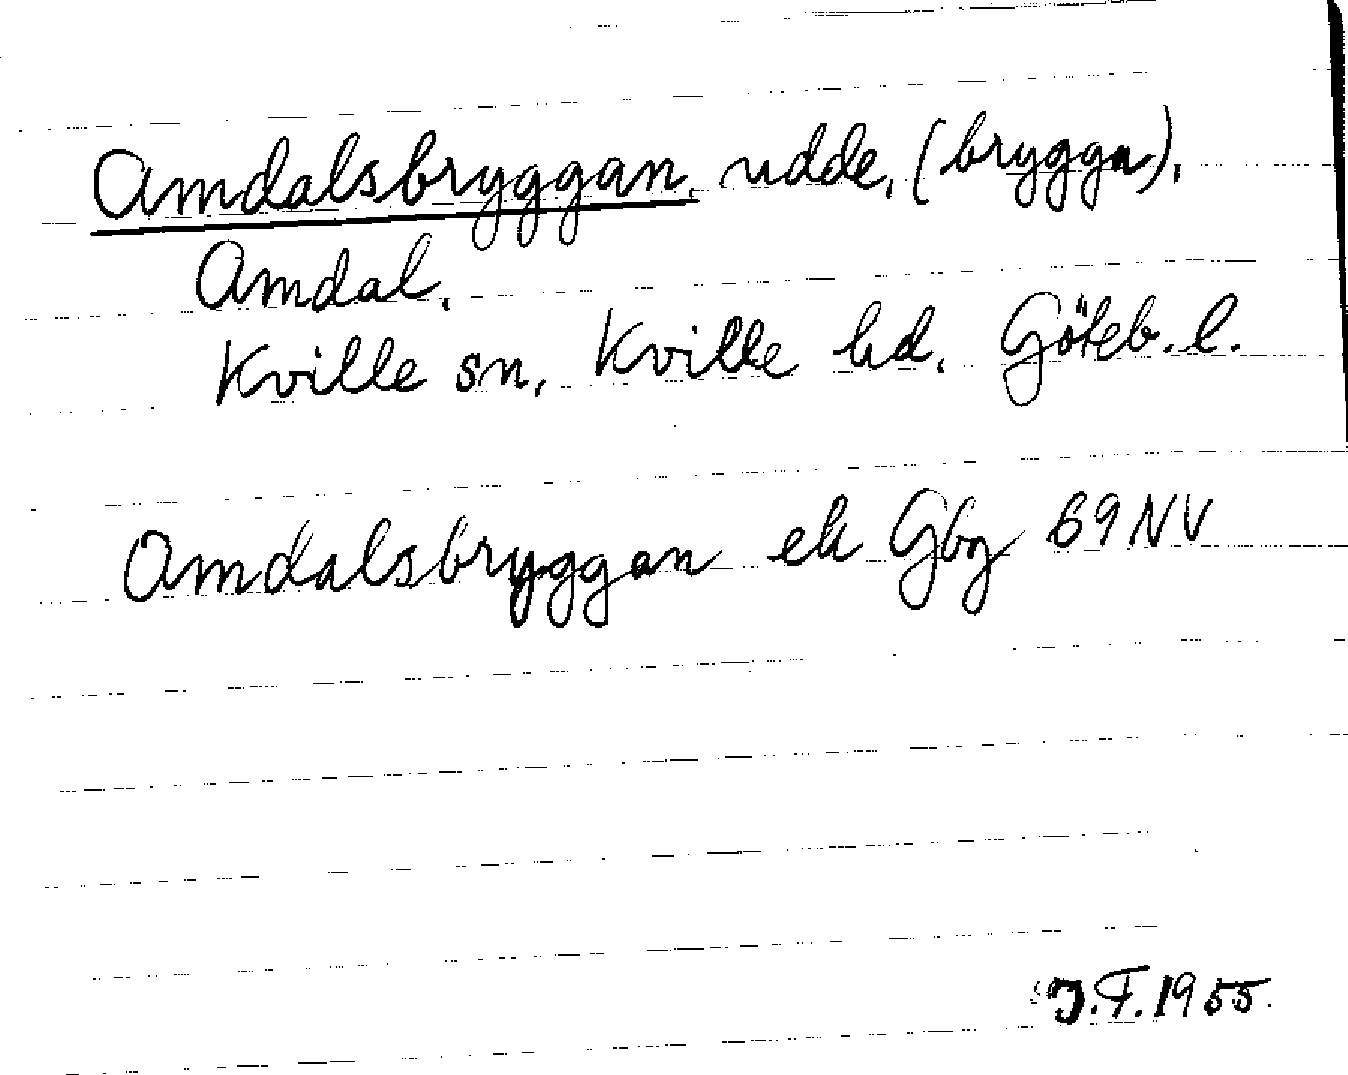 Amdalsbryggan, udde, (brygga),
Amdal.
Kville sn, Kville hd, Göteb. l.
Amdalsbryggan ek Gbg 69 NV
J.F. 1955.